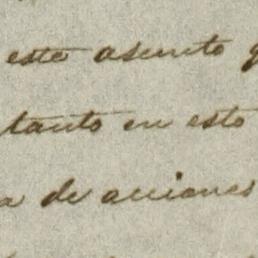 este asunto q
tanto en esto
a de acciones